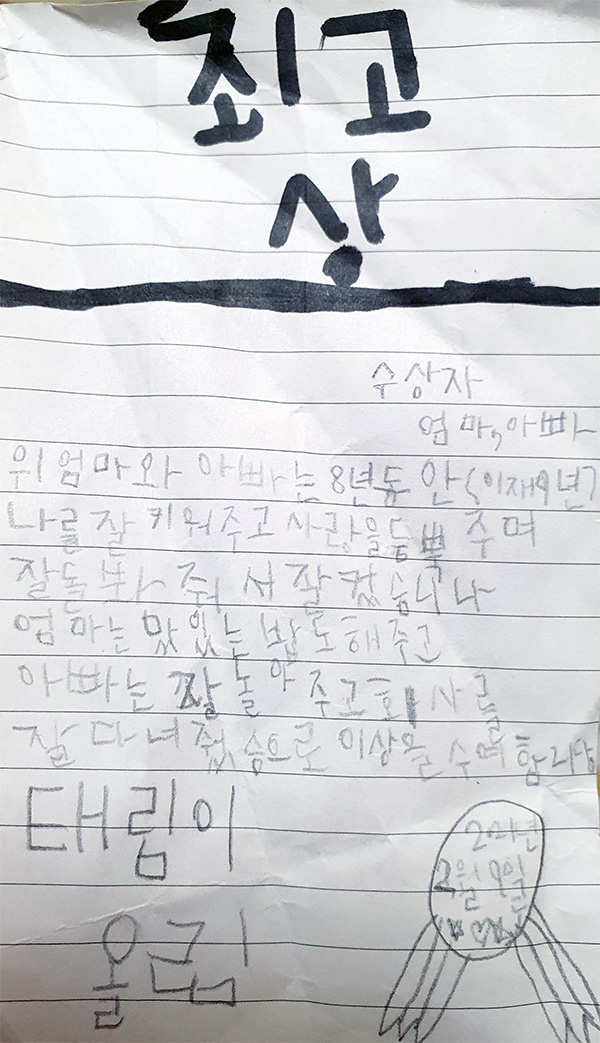 최고
상
수상자
엄마,아빠
위 엄마와 아빠는 8년동안(이재9년)
나를 잘 키워주고 사랑을듬뿍 주며
잘돌봐 줘서 잘 컸습니다
엄마는 맜있는 밥도해주고
아빠는 잘 놀아주고 회사를
잘 다녀줬슴으로 이상을 수여 함니당
태림이
올림
2학년
2월 9일